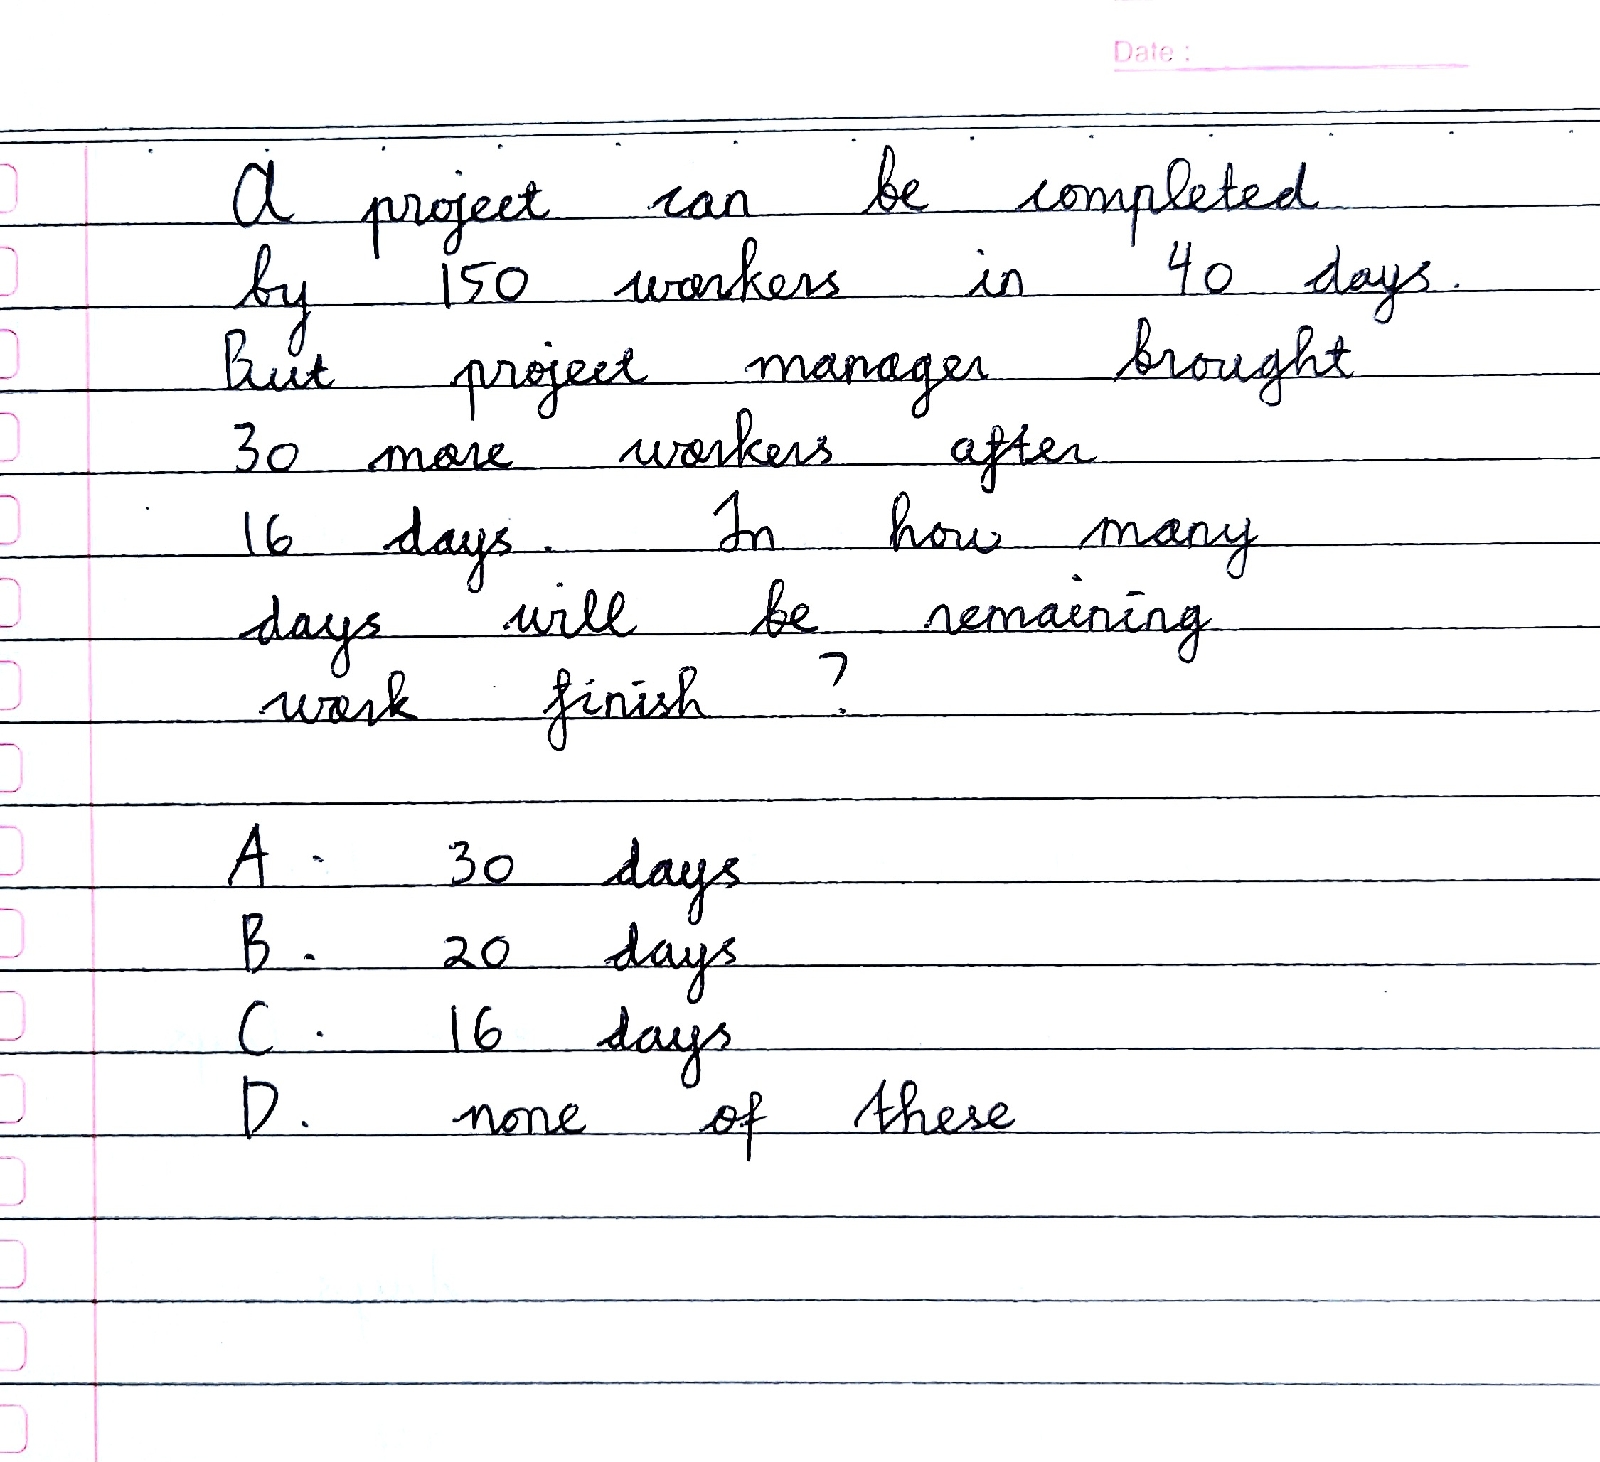 Date :
A project can be completed
by 150 workers in 40 days.
But project manager brought
30 more workers after
16 days. In how many
days will be remaining
work finish ?
A. 30 days
B. 20 days
C. 16 days
D. none of these